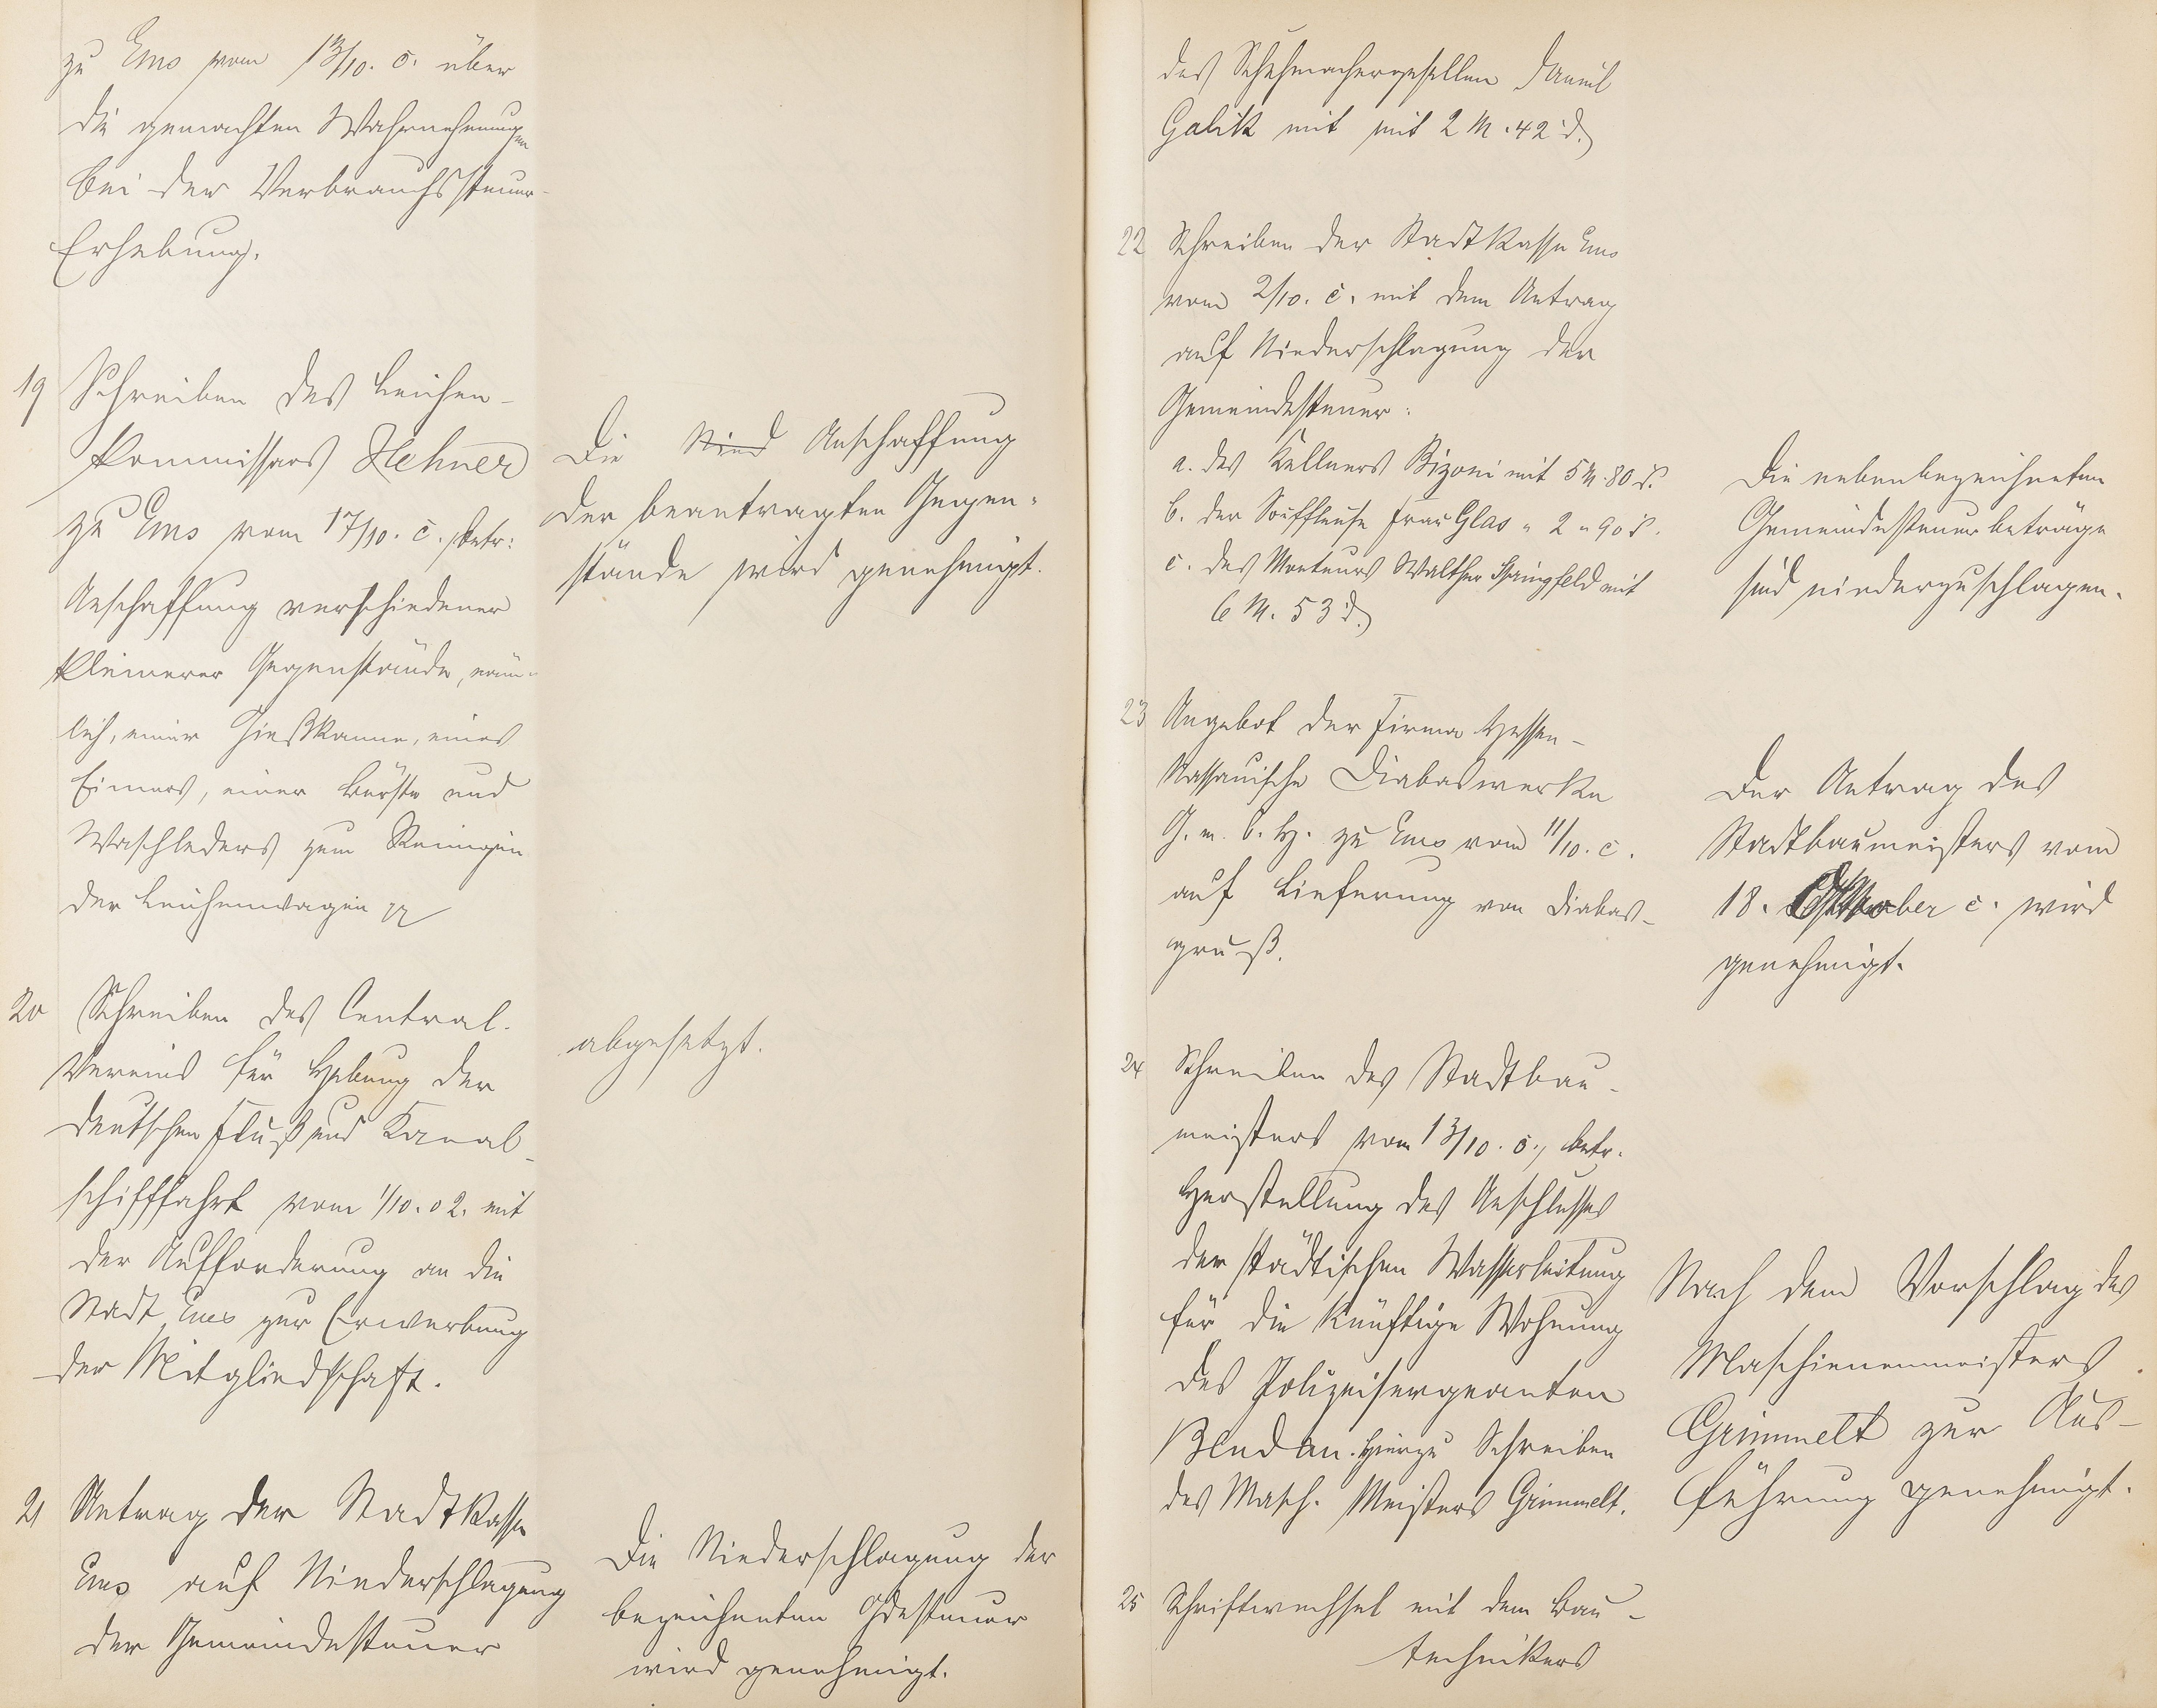 zu Ems vom 13/10. c. über
die gemachten Wahrnehmungen
bei der Verbrauchssteuer-
Erhebung.
19 Schreiben des Leichen-
kommissars Hehner
zu Ems vom 17/10. c., betr:
Anschaffung verschiedener
kleinerer Gegenstände, näm-
lich, einer Gießkanne, eines
Eimers, einer Bürste und
Waschleders zum Reinigen
der Leichenwagen pp
Die Anschaffung
der beantragten Gegen-
stände wird genehmigt.
20 Schreiben des Central-
Vereins für Hebung der
deutschen Fluß und Kanal-
schifffahrt vom 1/10.02. mit
der Aufforderung an die
Stadt Ems zur Erwerbung
der Mitgliedschaft.
abgesetzt.
21 Antrag der Stadtkasse
Ems auf Niederschlagung
der Gemeindesteuer
Die Niederschlagung der
bezeichneten Gdesteuer
wird genehmigt.
des Schuhmachergesellen Daniel
Galik mit mit 2 M. 42 d.
22 Schreiben der Stadtkasse Ems
vom 2/10. c. mit dem Antrag
auf Niederschlagung der
Gemeindesteuer:
a. des Kellners Bizoni mit 5 M. 80 d.
b. der Souffleuse Frau Glas " 2 " 90 d.
c. des Monteurs Walther Springfeld mit
6 M. 53 d.
Die nebenbezeichneten
Gemeindesteuerbeträge
sind niederzuschlagen.
23 Angebot der Firma Hessen-
Nassauische Diabaswerke
G. m. b. H. zu Ems vom 11/10. c.
auf Lieferung von Diabas-
gruß.
Der Antrag des
Stadtbaumeisters vom
18. Oktober c. wird
genehmigt.
24 Schreiben des Stadtbau-
meisters vom 13/10. c., betr.
Herstellung des Anschlusses
der städtischen Wasserleitung
für die künftige Wohnung
des Polizeisergeanten
Bendan. Hierzu Schreiben
des Masch. Meisters Grimmelt.
Nach dem Vorschlag des
Maschienenmeisters
Grimmelt zur Aus-
führung genehmigt.
25 Schriftwechsel mit dem Bau-
technikers